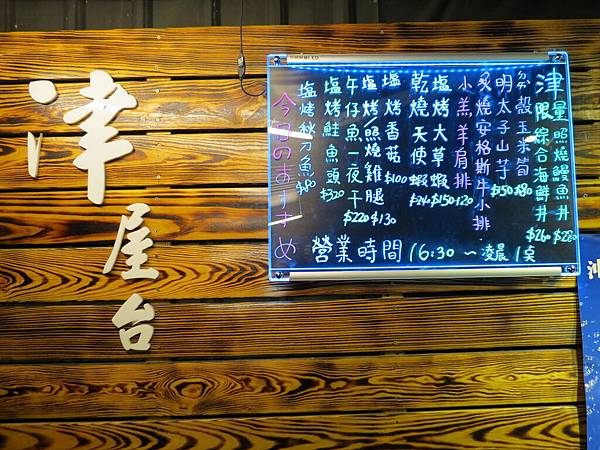 津屋台
津
限量照燒鰻魚丼 $280
綜合海鮮丼 $260
帶殼玉米筍 $80
明太子山芋 $150
炙燒安格斯牛小排
小羔羊肩排
塩烤大草蝦 $150
乾燒天使蝦 $240
塩烤香菇 $100
塩烤照燒雞腿 $130
午仔魚一夜干 $220
塩烤鮭魚頭 $320
塩烤秋刀魚 $80
今日のおすすめ
營業時間 16:30 ～ 凌晨 1